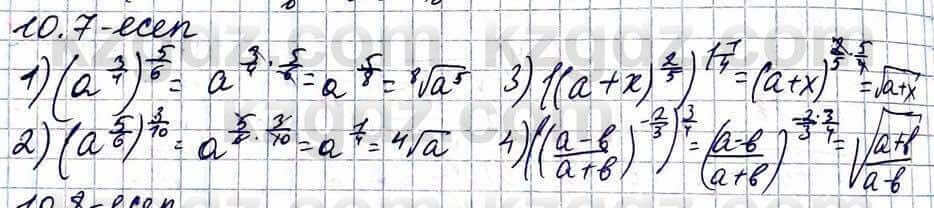 10.7-есеп
1) (a^{3/4})^{5/6} = a^{3/4 · 5/6} = a^{5/8} = ⁸√a⁵ 3) ((a+x)^{2/5})^{1 1/4} = (a+x)^{2/5 · 5/4} = √a+x
2) (a^{5/6})^{3/10} = a^{5/6 · 3/10} = a^{1/4} = ⁴√a 4) (((a-в)/(a+в))^{-2/3})^{3/4} = ((a-в)/(a+в))^{-2/3 · 3/4} = √((a+в)/(a-в))
10.8-есеп